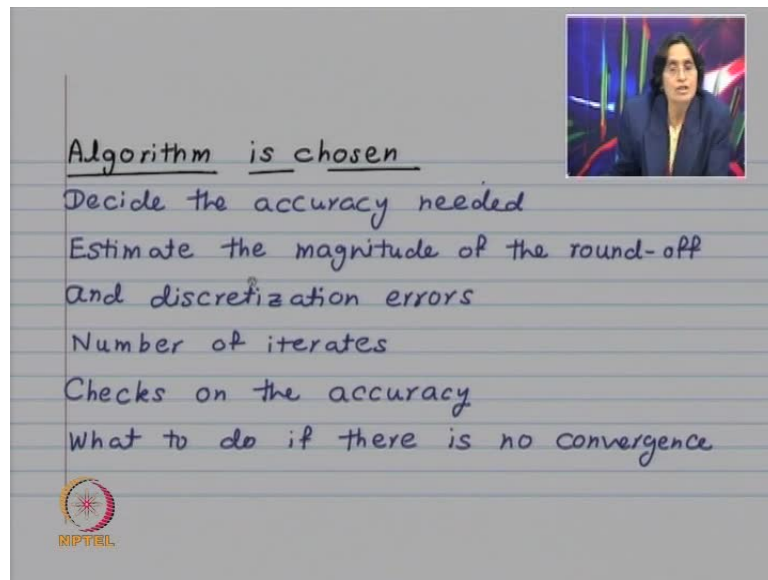 Algorithm is chosen
Decide the accuracy needed
Estimate the magnitude of the round-off
and discretization errors
Number of iterates
Checks on the accuracy
What to do if there is no convergence
NPTEL